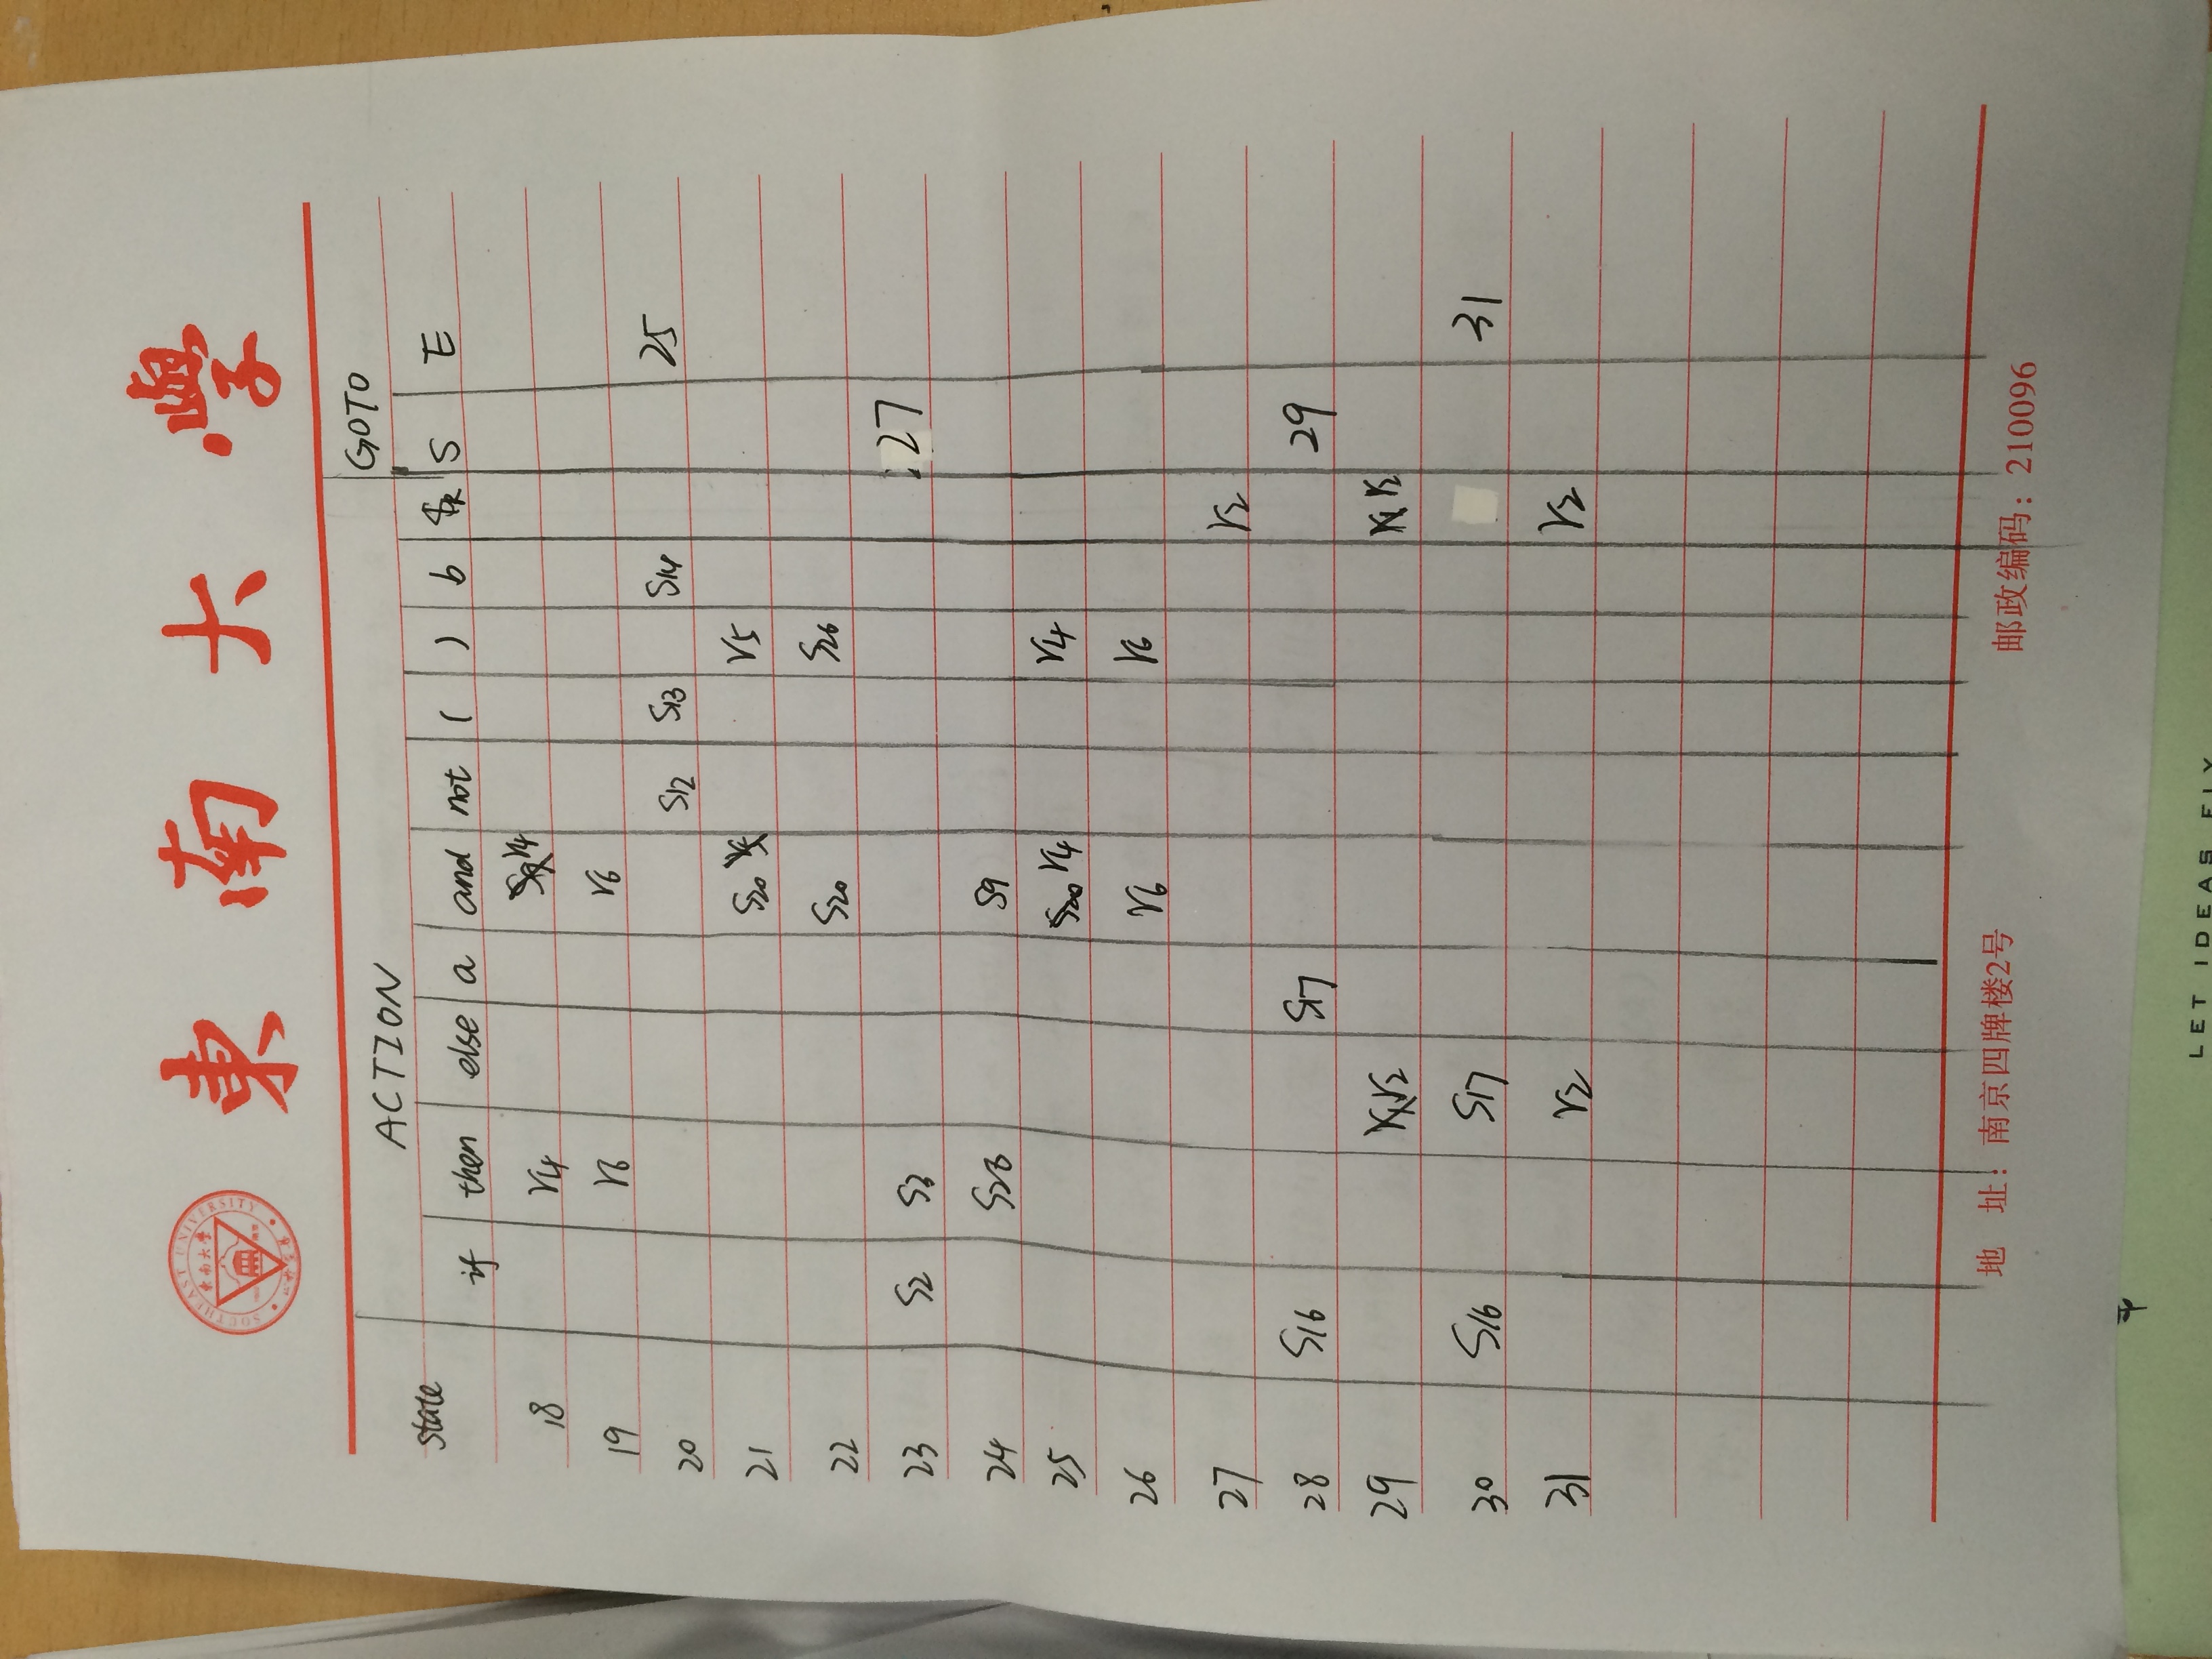 SOUTHEAST UNIVERSITY
東南大學
東南大學
ACTION GOTO
state if then else a and not ( ) b S E
18 r4 r4
19 r6 r6
20 S12 S13 S14 25
21 S20 r5
22 S20 S26
23 S2 S3 27
24 S28 S9
25 r4 r4
26 r6 r6
27 r2
28 S16 S17 29
29 r2 r2
30 S16 S17 31
31 r2 r2
地 址：南京四牌楼2号 邮政编码：210096
LET IDEAS FLY